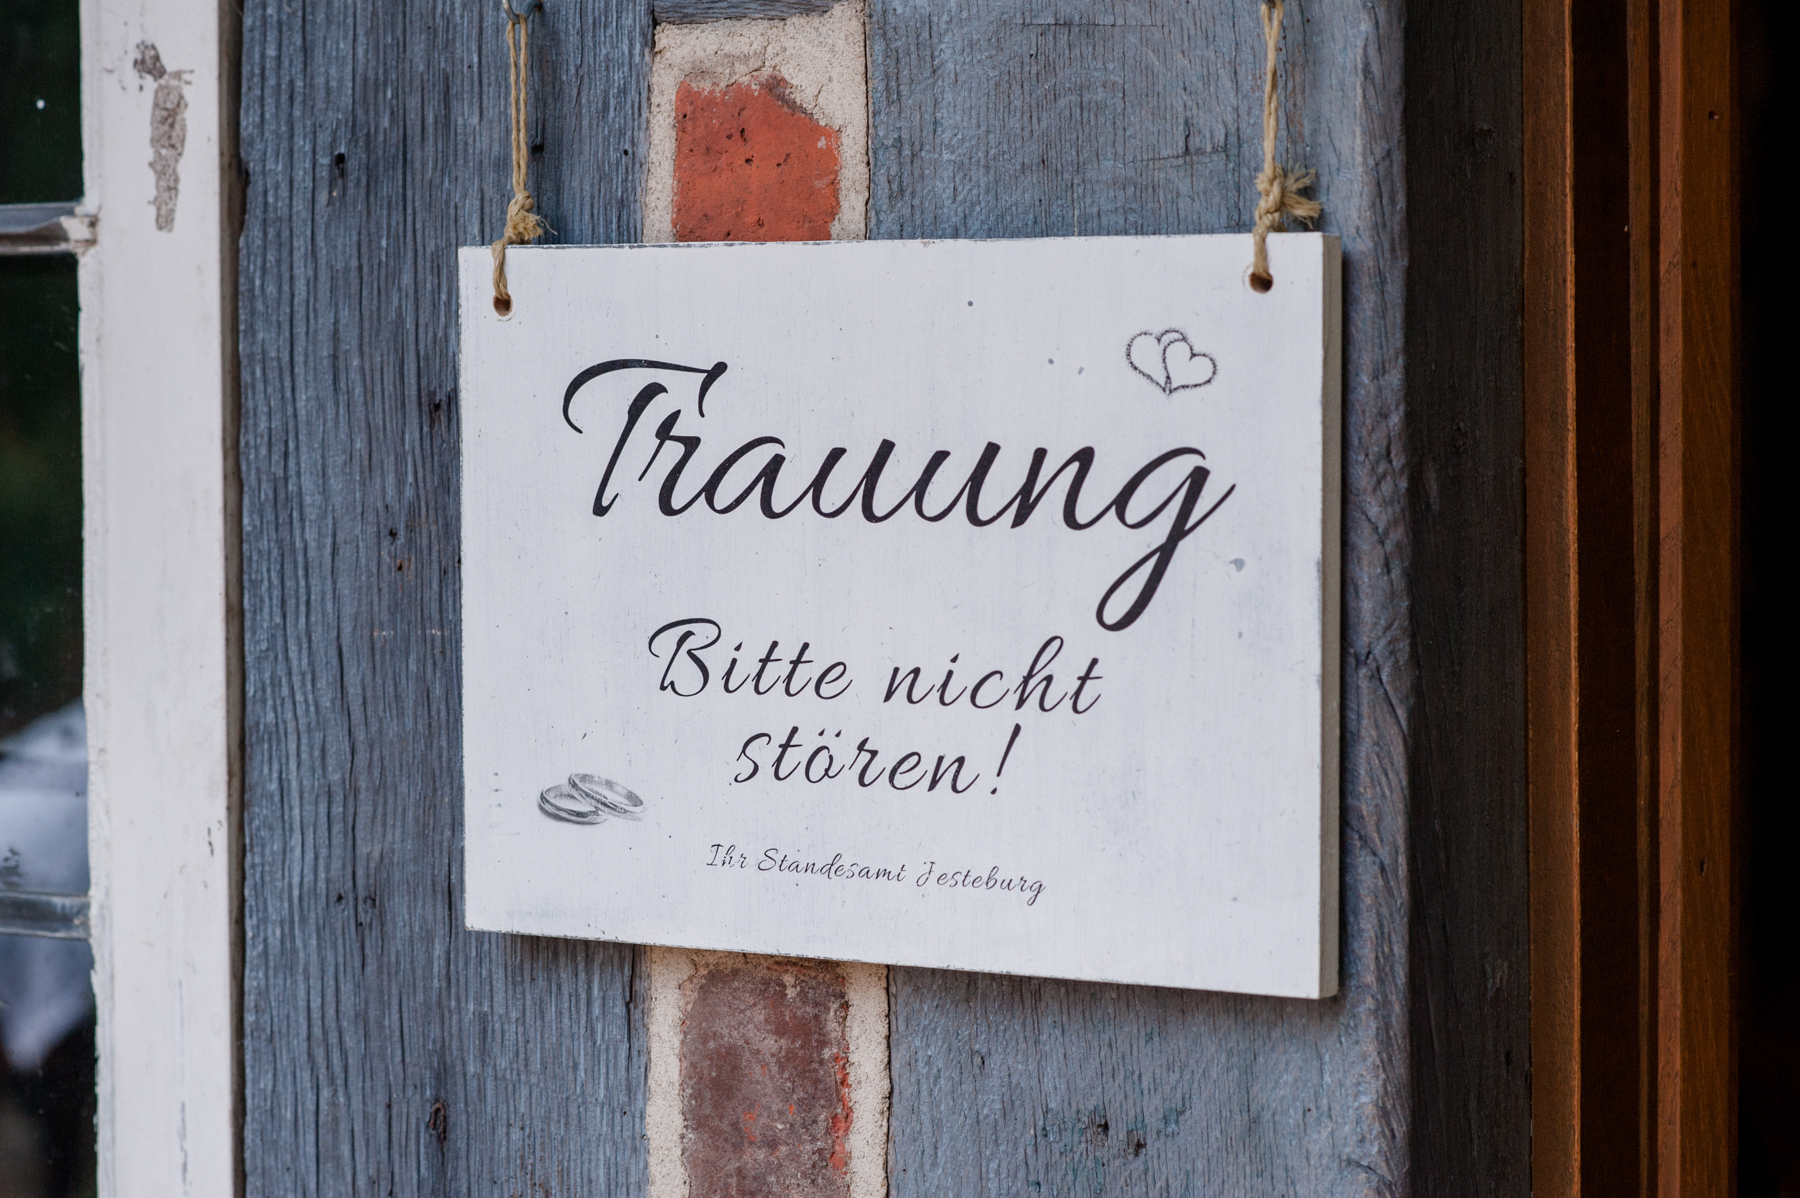 Trauung
Bitte nicht
stören!
Ihr Standesamt Jesteburg